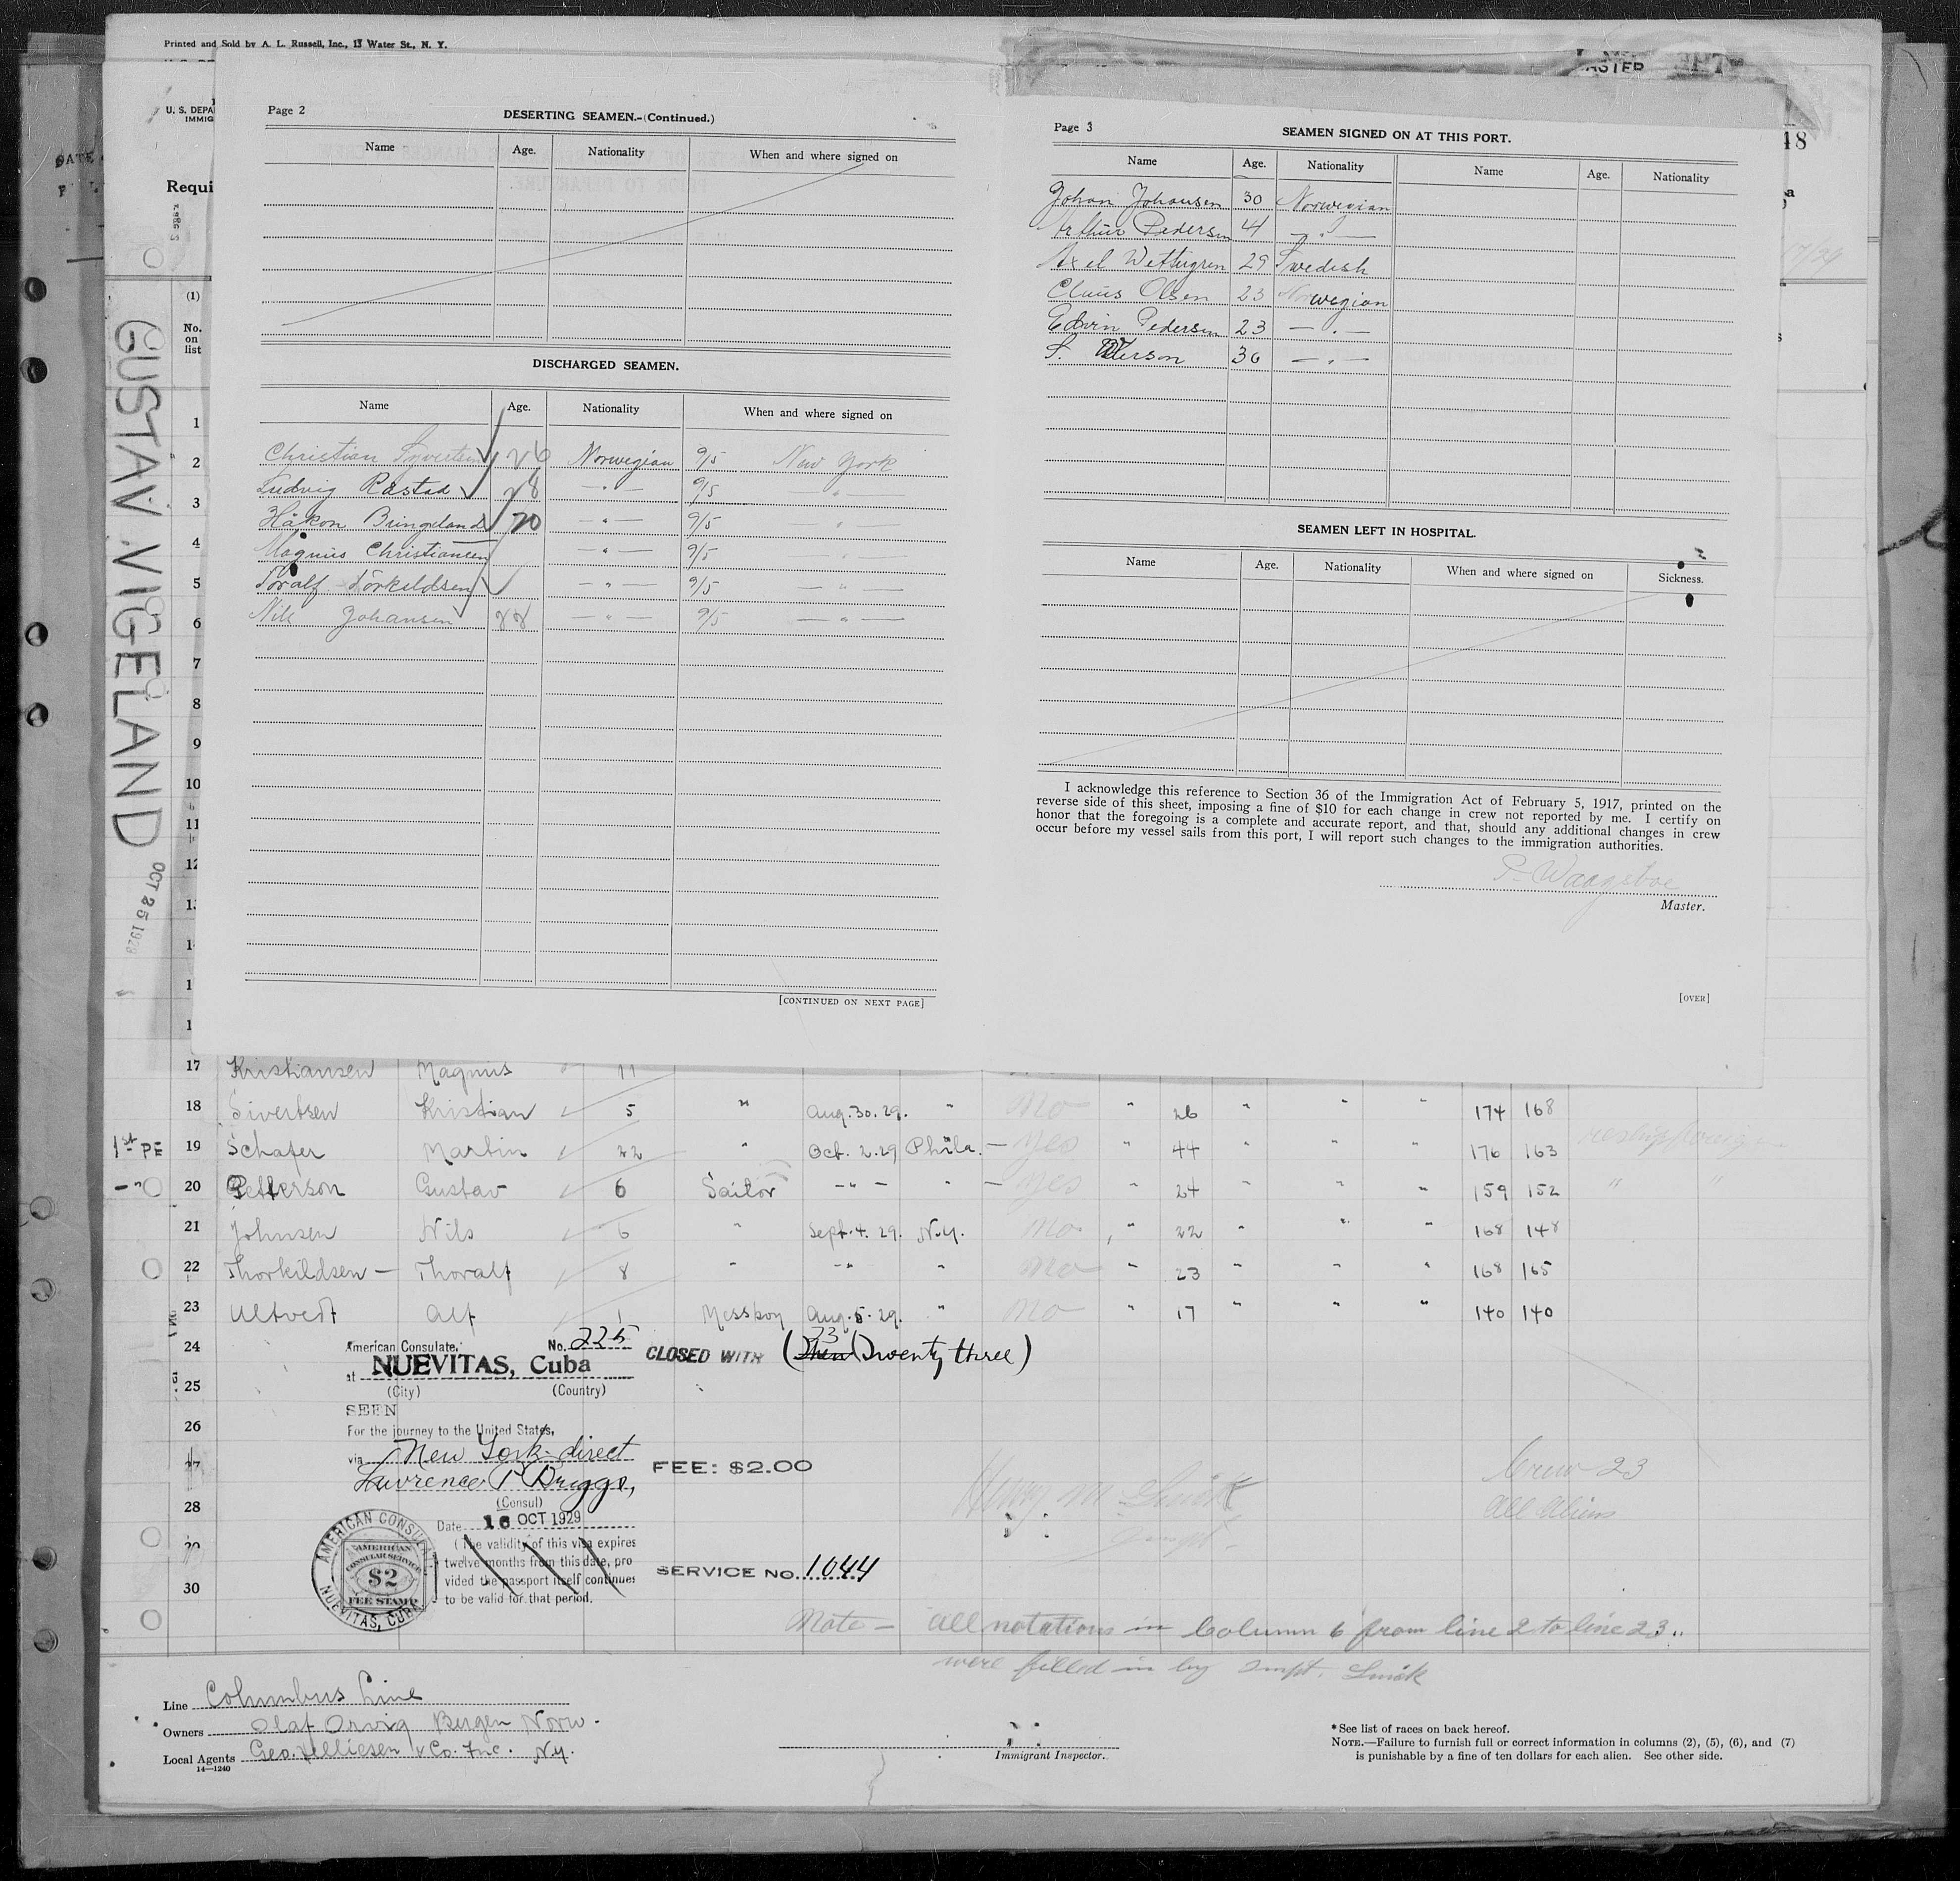 Printed and Sold by A. L. Russell, Inc., 13 Water St., N. Y.
U. S. DEPA
IMMIG
Requi
GUSTAV VIGELAND
OCT 25 1929
Page 2
DESERTING SEAMEN.-(Continued.)
Name Age. Nationality When and where signed on
DISCHARGED SEAMEN.
Name Age. Nationality When and where signed on
Christian Syvertsen 26 Norwegian 9/5 New York
Ludvig Rastad 28 — " — 9/5 — " —
Håkon Bringeland 20 — " — 9/5 "
Magnus Christiansen — " — 9/5
Toralf Torkildsen — " — 9/5 — " —
Nils Johansen 22 — " — 9/5 — " —
[CONTINUED ON NEXT PAGE]
Page 3
SEAMEN SIGNED ON AT THIS PORT.
Name Age. Nationality Name Age. Nationality
Johan Johansen 30 Norwegian
Arthur Pedersen — " —
Axel Wettergren 29 Swedish
Claus Olsen 23 Norwegian
Edvin Pedersen 23 — " —
S. 36 — " —
SEAMEN LEFT IN HOSPITAL.
Name Age. Nationality When and where signed on Sickness.
I acknowledge this reference to Section 36 of the Immigration Act of February 5, 1917, printed on the
reverse side of this sheet, imposing a fine of $10 for each change in crew not reported by me. I certify on
honor that the foregoing is a complete and accurate report, and that, should any additional changes in crew
occur before my vessel sails from this port, I will report such changes to the immigration authorities.
P. Waagsboe
Master.
[OVER]
48
(1)
No.
on
list
1
2
3
4
5
6
7
8
9
10
11
12
17 Kristiansen Magnus 11
18 Sivertsen Kristian 5 " Aug. 30. 29. " No " 26 " " " 174 168
1st PE 19 Schafer Martin 22 " Oct. 2. 29 Phila. — Yes " 44 " " " 176 163 reship foreign
— " 20 Petterson Gustav 6 Sailor — " — " — Yes " 24 " " " 159 152 " "
21 Johnsen Nils 6 " Sept. 4. 29. N.Y. No " 22 " " " 168 148
22 Thorkildsen — Thoralf 8 " — " " No " 23 " " " 168 165
23 Ultvedt Alf 1 Messboy Aug. 5. 29. " No " 17 " " " 140 140
24
25
26
27
28
29
30
American Consulate, No. 225
at NUEVITAS, Cuba
(City) (Country)
CLOSED WITH (23 Twenty three)
SEEN
For the journey to the United States,
via New York direct
Lawrence P. Briggs,
(Consul)
FEE: $2.00
Date 16 OCT 1929
(The validity of this visa expires
twelve months from this date, pro
vided the passport itself continues
to be valid for that period.
AMERICAN CONSULATE
NUEVITAS, CUBA
AMERICAN
CONSULAR SERVICE
$2
FEE STAMP
SERVICE NO. 1044
Crew 23
All Aliens
Note — All notations in Column 6 from line 2 to line 23..
were filled in by Inspt. Smick
Line Columbus Line
Owners Olaf Orvig Bergen Norw.
Local Agents Geo. Zelliesen & Co. Inc. N.Y.
14—1240
Immigrant Inspector.
*See list of races on back hereof.
NOTE.—Failure to furnish full or correct information in columns (2), (5), (6), and (7)
is punishable by a fine of ten dollars for each alien. See other side.